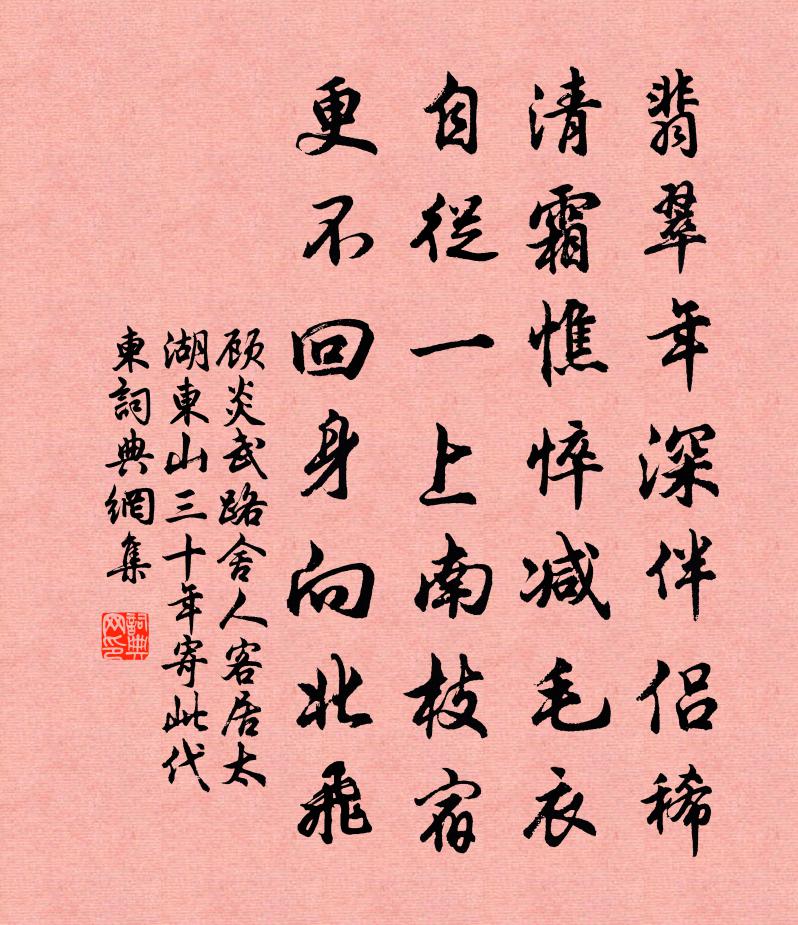 翡翠年深伴侣稀
清霜憔悴减毛衣
自從一上南枝宿
更不回身向北飛
顾炎武路舍人客居太
湖東山三十年寄此代
東詞典網集
詞典
网印